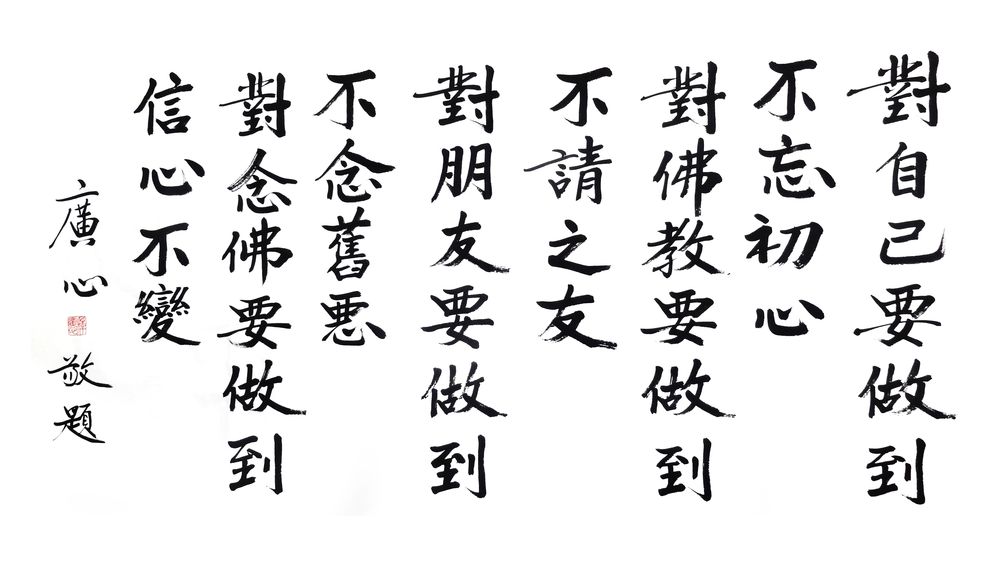 對自己要做到
不忘初心
對佛教要做到
不請之友
對朋友要做到
不念舊惡
對念佛要做到
信心不變
廣心敬題